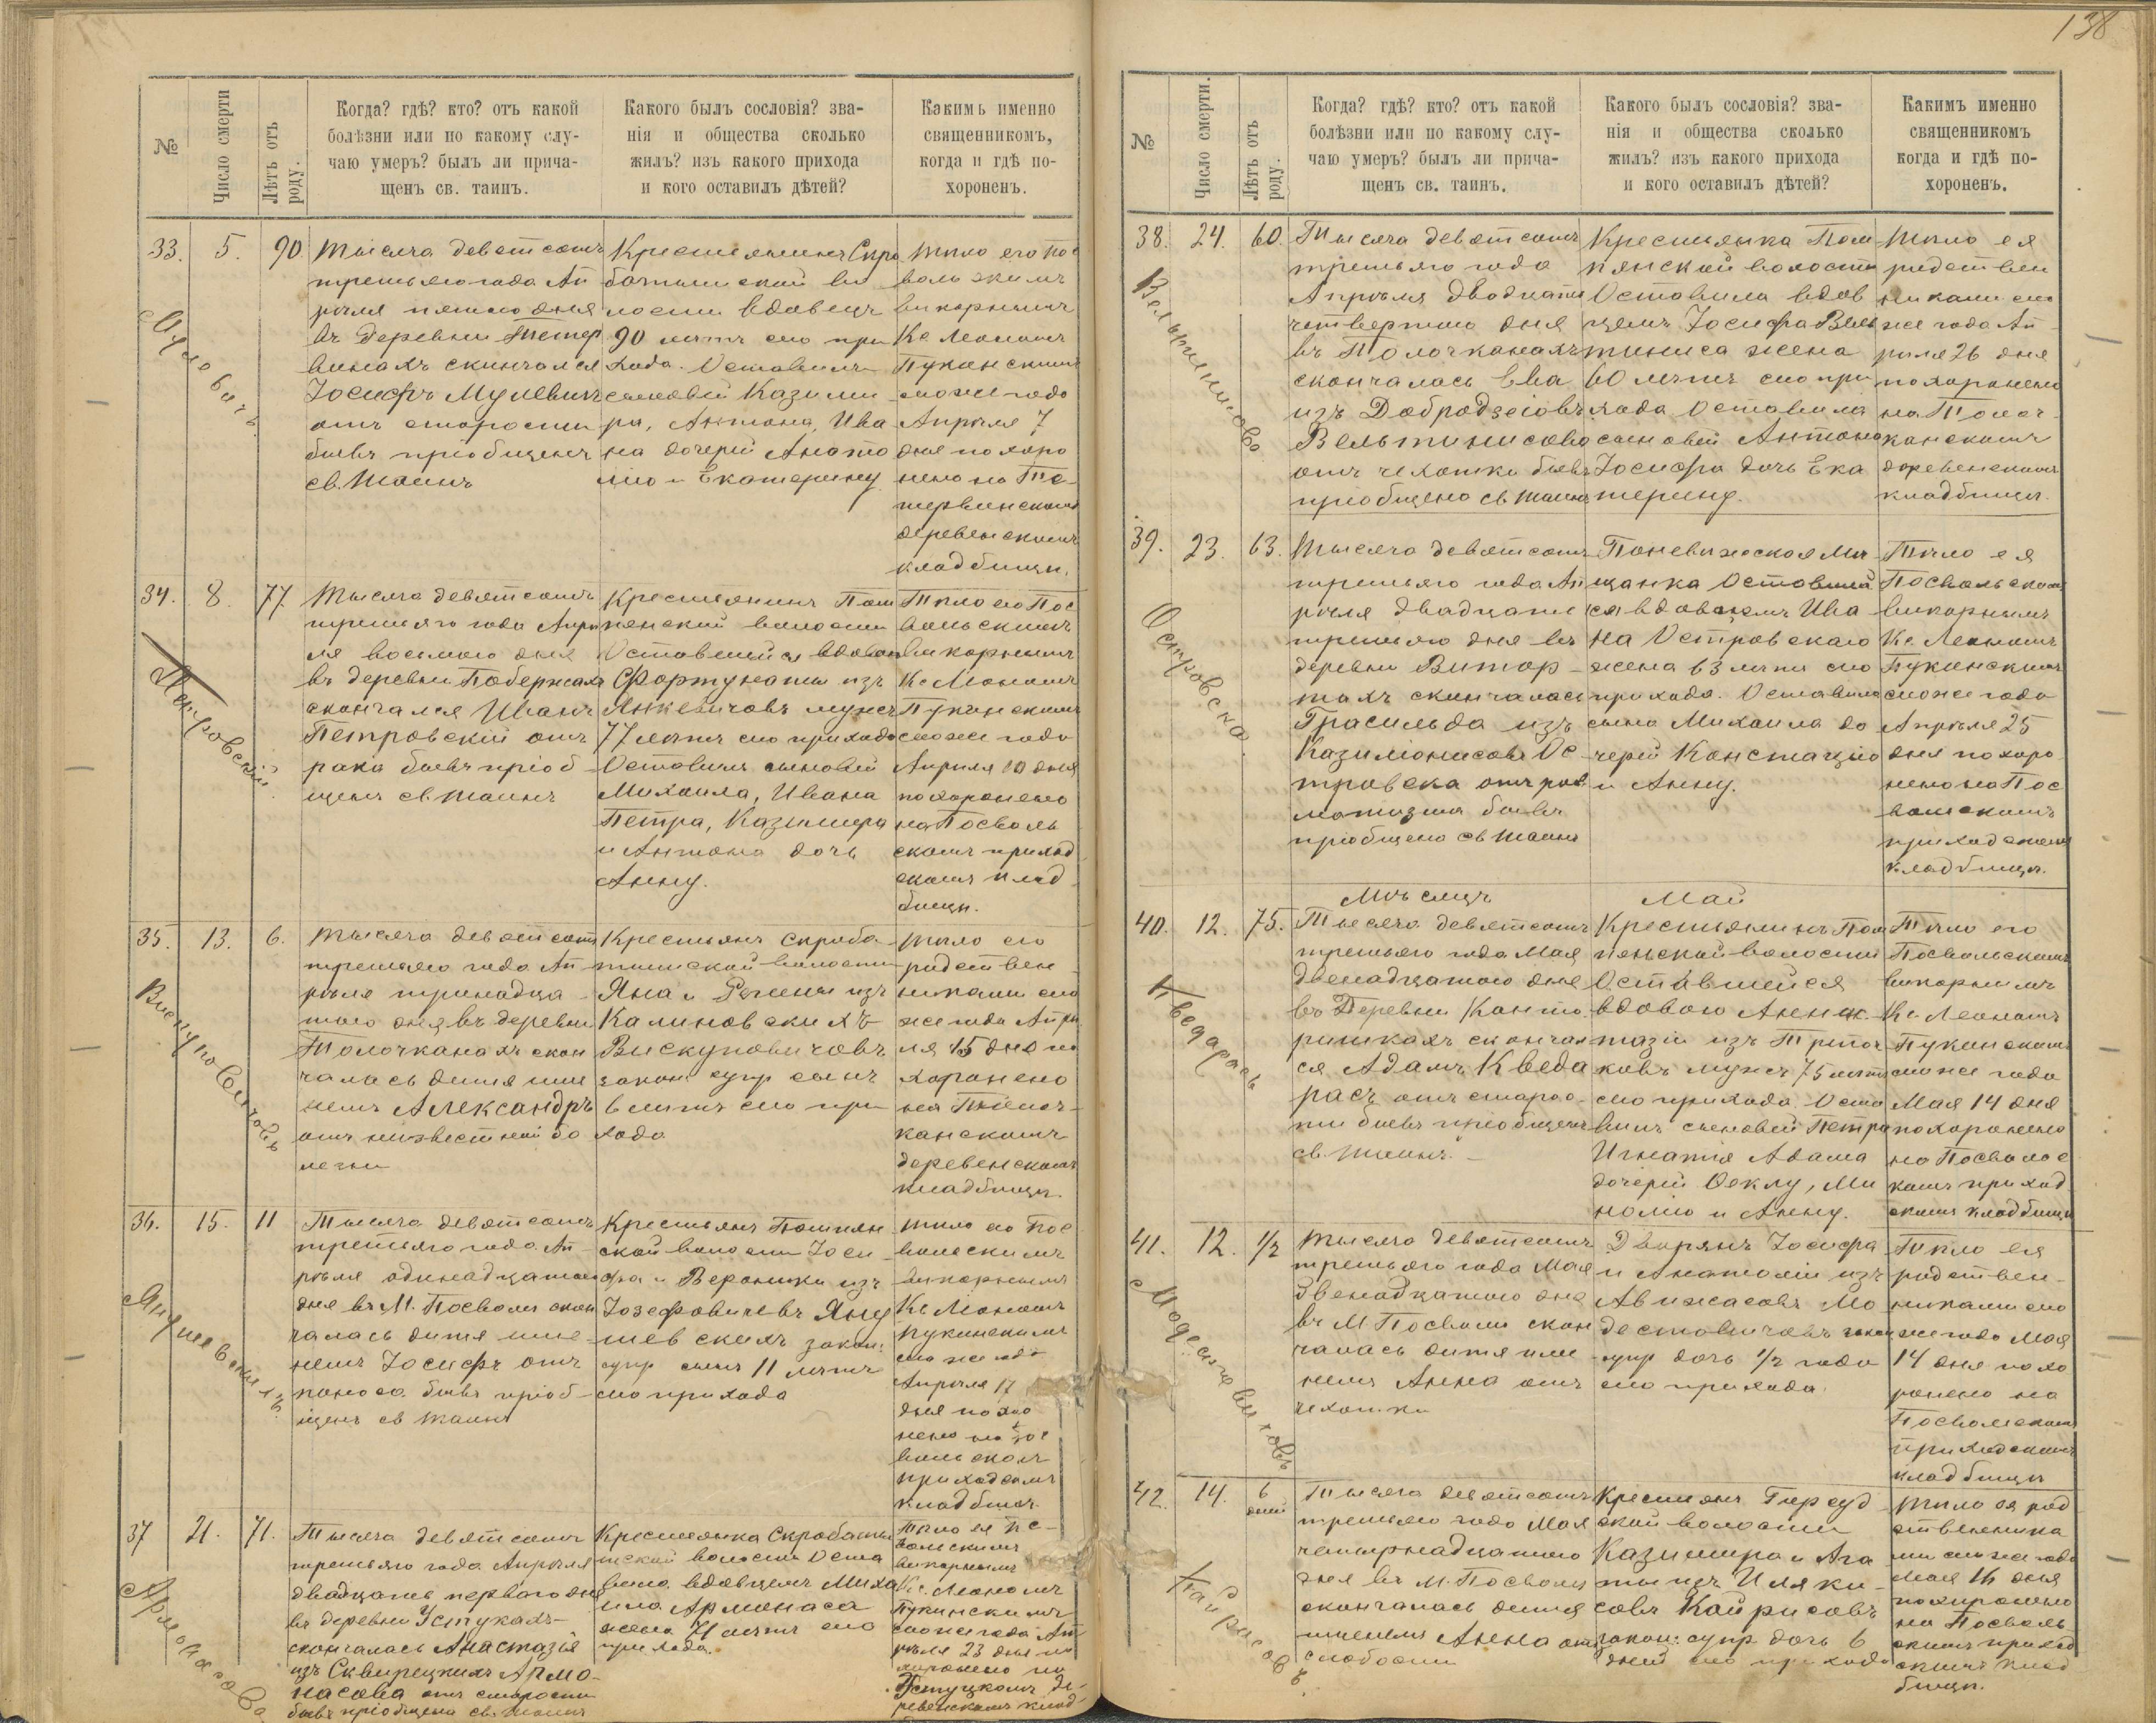 138
№
Число смерти
Лѣтъ отъ роду.
Когда? гдѣ? кто? отъ какой
болѣзни или по какому слу-
чаю умеръ? былъ ли прича-
щенъ св. таинъ.
Какого былъ сословія? зва-
нія и общества сколько
жилъ? изъ какого прихода
и кого оставилъ дѣтей?
Какимъ именно
священникомъ,
когда и гдѣ по-
хороненъ.
33. 5. 90
Тысяча девятсотъ
третьяго года Ап
рѣля пятаго дня
въ деревни Петер
винахъ скончался
Іосифъ Мулевичъ
отъ старости
бывъ пріобщенъ
св. таинъ
Крестьянинъ Скро
ботишской во
лости вдовецъ
90 лѣтъ сего при
хода. Оставилъ
сыновей Казими
ра, Антона, Ива
на дочерей Анато
лію и Екатерину
Тѣло его Пос
вольскимъ
викарнымъ
Кс Леономъ
Пукинскимъ
сего же года
Апрѣля 7
дня похоро
нено на Пе-
тервинскомъ
деревенскомъ
кладбищѣ.
34. 8. 77.
Петровскій
Тысяча девятсотъ
третьяго года Апрѣ
ля восьмого дня
въ деревни Побержахъ
скончался Иванъ
Петровскій отъ
рака бывъ пріоб
щенъ св. таинъ
Крестьянинъ Пом
пянской волости
Оставшейся вдовою
Фортунаты изъ
Янкевичовъ мужъ
77 лѣтъ сего прихода
Оставилъ сыновей
Михаила, Ивана
Петра, Казимира
и Антона дочь
Анну.
Тѣло его Пос
вольскимъ
викарнымъ
Кс Леономъ
Пукинскимъ
сего же года
Апрѣля 10 дня
похоронено
на Посволь
скомъ приход
скомъ клад
бищѣ.
35. 13. 6.
Вискуповичовъ
Тысяча девятсотъ
третьяго года Ап
рѣля тринадца-
того дня въ деревни
Толочканахъ скон
чалась дитя име
немъ Александръ
отъ неизвестной бо
лезни
Крестьянъ Скроба-
тишской волости
Яна и Регины изъ
Калиновскихъ
Вискуповичовъ
закон супр сынъ
6 лѣтъ сего при
хода
Тѣло его
родствен
никами сего
же года Апрѣ
ля 15 дня по
хоронено
на Толоч-
канскомъ
деревенскомъ
кладбищѣ.
36. 15. 11
Янушевскихъ
Тысяча девятсотъ
третьяго года Ап-
рѣля одинадцатого
дня въ М. Посволи скон
чалась дитя име-
немъ Іосифъ отъ
поноса бывъ пріоб-
щенъ св таинъ
Крестьянъ Помпян
ской волости Іоси
фа и Вероники изъ
Іозефовичевъ Яну
шевскихъ закон:
супр сынъ 11 лѣтъ
сего прихода
Тѣло его Пос
вольскимъ
викарнымъ
Кс Леономъ
Пукинскимъ
сего же года
Апрѣля 17
дня похо
нено на Пос
вольскомъ
приходскомъ
кладбищѣ.
37 21. 71.
Армонасова
Тысяча девятсотъ
третьяго года Апрѣля
двадцать перваго дня
въ деревни Устукахъ
скончалась Анастазія
изъ Сквирецкихъ Армо-
насова отъ старости
бывъ пріобщена св. таинъ
Крестьянка Скробатыш
тской волости Оста
вила вдовцемъ Миха
ила Армонаса
жена 71 лѣтъ сего
прихода.
Тѣло ея Пос-
вольскимъ
викарнымъ
Кс. Леономъ
Пукинскимъ
сего же года Ап
рѣля 23 дня по
хоронено на
Устуцкомъ де-
ревенскомъ клад-
№
Число смерти.
Лѣтъ отъ роду.
Когда? гдѣ? кто? отъ какой
болѣзни или по какому слу-
чаю умеръ? былъ ли прича-
щенъ св. таинъ.
Какого былъ сословія? зва-
нія и общества сколько
жилъ? изъ какого прихода
и кого оставилъ дѣтей?
Какимъ именно
священникомъ
когда и гдѣ по-
хороненъ.
38. 24. 60.
Вельтинисова
Тысяча девятсотъ
третьяго года
Апрѣля двадцать
четвертого дня
въ Толочканахъ
скончалась Ева
изъ Добродзеіовъ
Вельтинисова
отъ чехотки бывъ
пріобщена св таинъ
Крестьянка Пом
пянской волости
Оставила вдов
цемъ Іосифа Вель
тиниса жена
60 лѣтъ сего при
хода Оставила
сыновей Антона
Іосифа дочь Ека
терину.
Тѣло ея
родствен
никами сего
же года Ап-
рѣля 26 дня
похоронено
на Толоч-
канскомъ
деревенскомъ
кладбищѣ.
39. 23. 63.
Островска.
Тысяча девятсотъ
третьяго года Ап
рѣля двадцать
третьяго дня въ
деревни Витар-
тахъ скончалась
Грасильда изъ
Казимонисовъ Ос-
тровска отъ рев
матизма бывъ
пріобщена св таинъ
Поневежская Мѣ
щанка Оставшей
ся вдовцемъ Ива
на Островскаго
жена 63 лѣтъ сего
прихода. Оставила
сына Михаила до
черей Констанцію
и Анну.
Тѣло ея
Посвольским
викарнымъ
Кс. Леономъ
Пукинскимъ
сего же года
Апрѣля 25
дня похоро
нено на Пос
вольскомъ
приходскомъ
кладбищѣ.
Мѣсяцъ Май
40. 12. 75.
Кведарасъ
Тысяча девятсотъ
третьяго года Мая
двенадцатого дня
въ Деревни Канто
ришкахъ скончал
ся Адамъ Кведа
расъ отъ старос-
ти бывъ пріобщенъ
св. таинъ.
Крестьянинъ Пом
пянской волости
Оставшейся
вдовою Анас-
тазіи изъ Трѣтья
ковъ мужъ 75 лѣтъ
сего прихода Оста
вилъ сыновей Петра
Игнатія Адама
дочерей Феклу, Ми
халію и Анну.
Тѣло его
Посвольскимъ
викарнымъ
Кс Леономъ
Пукинскимъ
сего же года
Мая 14 дня
похоронено
на Посвольс
комъ приход
скомъ кладбищѣ
41. 12. 1/2
Модестовичовъ
Тысяча девятсотъ
третьяго года Мая
двенадцатого дня
въ М Посволи скон
чалась дитя име
немъ Анна отъ
чехотки
Дворянъ Іосифа
и Анатоліи изъ
Авижасовъ Мо
дестовичовъ закон
супр дочь 1/2 года
сего прихода.
Тѣло ея
родствен-
никами сего
же года Мая
14 дня похо
ронено на
Посвольскомъ
приходскомъ
кладбищѣ
42. 14. 6 дней
Кайрисовъ.
Тысяча девятсотъ
третьяго года Мая
четырнадцатого
дня въ М. Посволи
скончалась дитя
именемъ Анна отъ
слабости
Крестьянъ Гирсуд
ской волости
Казимира и Ага
ты изъ Иляки-
совъ Кайрисовъ
закон: супр дочь 6
дней сего прихода
Тѣло ея род
ственника
ми сего же года
Мая 16 дня
похоронено
на Посволь
скомъ приход
скомъ клад
бищѣ.